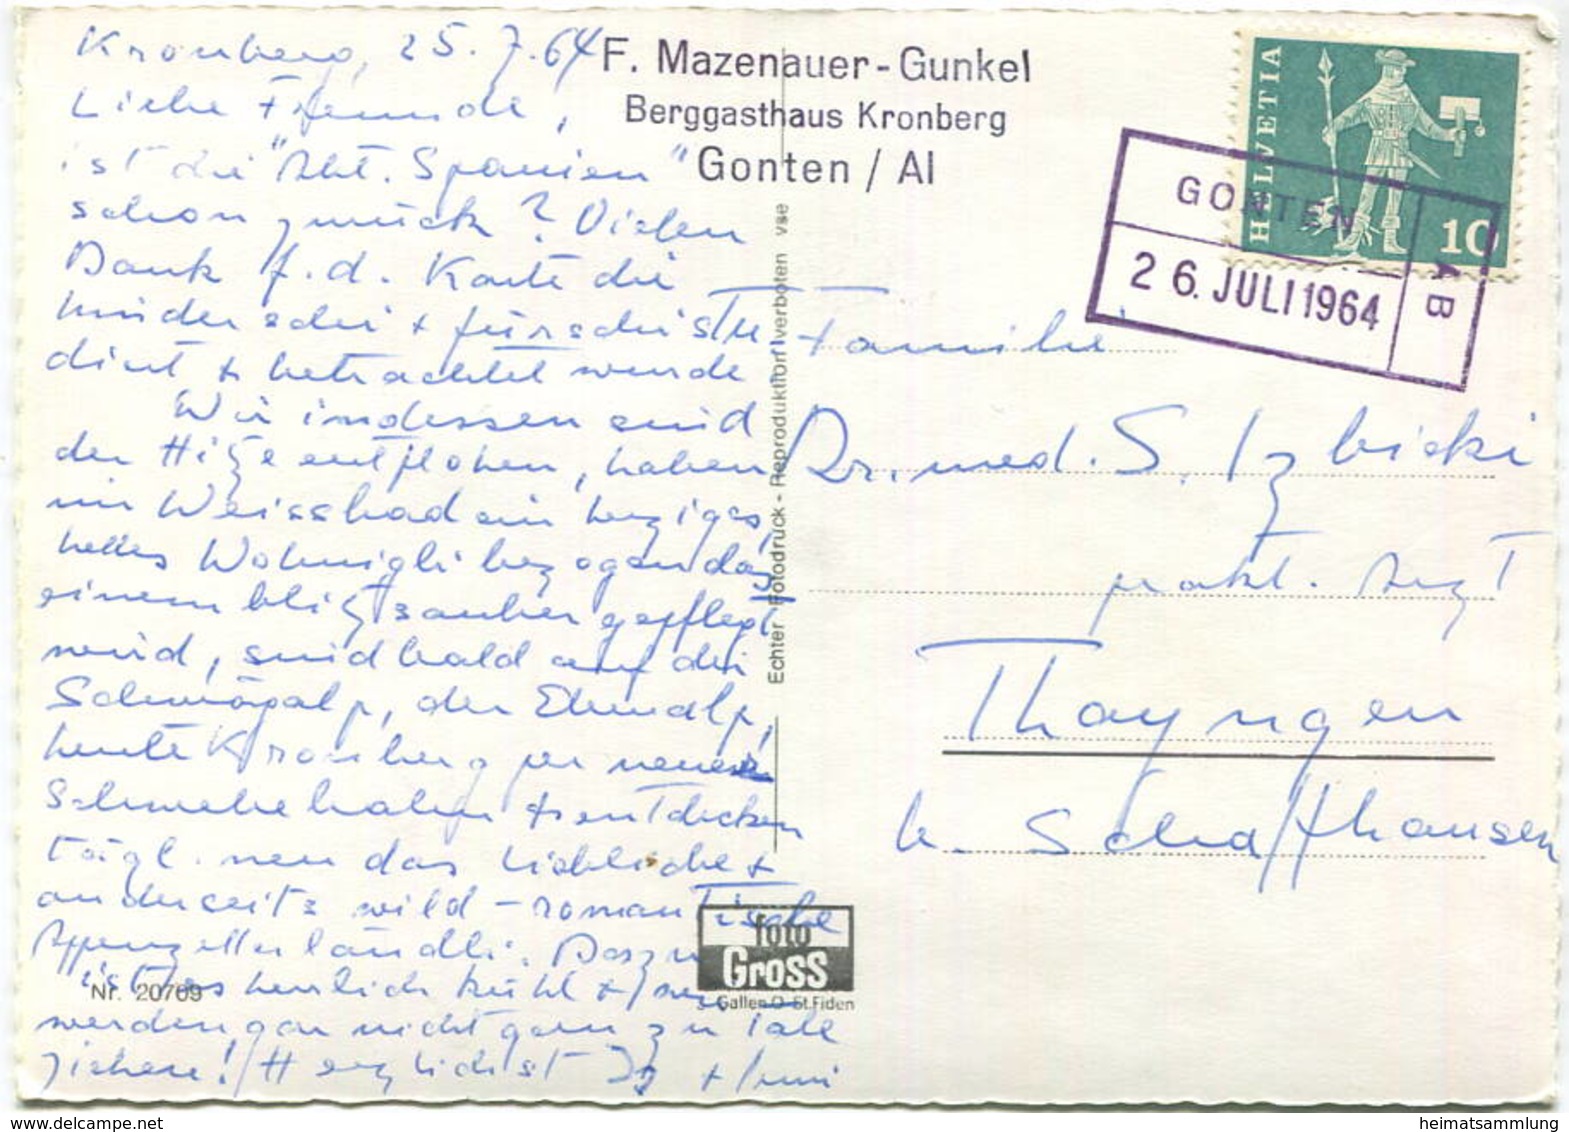 Kronberg, 25.7.64
Liebe Freunde,
ist die "Abt. Spanien"
schon zurück? Vielen
Dank f. d. Karte die
+
dient + betrachtet wurde.
Wir indessen sind
der Hitze entflohen, haben
in Weissbad ein herziges,
helles Wohnigli bezogen das
einem blitzsauber gepflegt
wird, sind bald auf der
Schwägalp, der Ebenalp,
heute Kronberg per neuer
Schwebebahn + entdecken
tägl. neu das liebliche +
anderseits wild-romantische
Appenzellerländli. Dazu
ist es herrlich kühl + wir
werden gar nicht gern zu Tale
ziehen! Herzlichst
F. Mazenauer-Gunkel
Berggasthaus Kronberg
Gonten / AI
HELVETIA
10
GONTEN
26. JULI 1964
AB
Familie
Dr. med. S. Izbicki
prakt. Arzt
Thayngen
b. Schaffhausen
Echter Fotodruck - Reproduktion verboten vse
foto
Gross
St. Gallen O - St. Fiden
Nr. 20769
delcampe.net
heimatsammlung